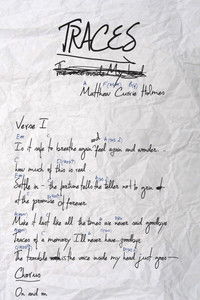 TRACES
The voice inside My
Matthew Currie Holmes
Verse I
Is it safe to breathe again feel again and wonder
how much of this is real
Settle in - the fortune tells the teller not to grin at
the promise of forever
Make it last like all the times we never said goodbye
traces of a memory I'll never have goodbye
The trouble is the voice inside my head just goes -
Chorus
On and on